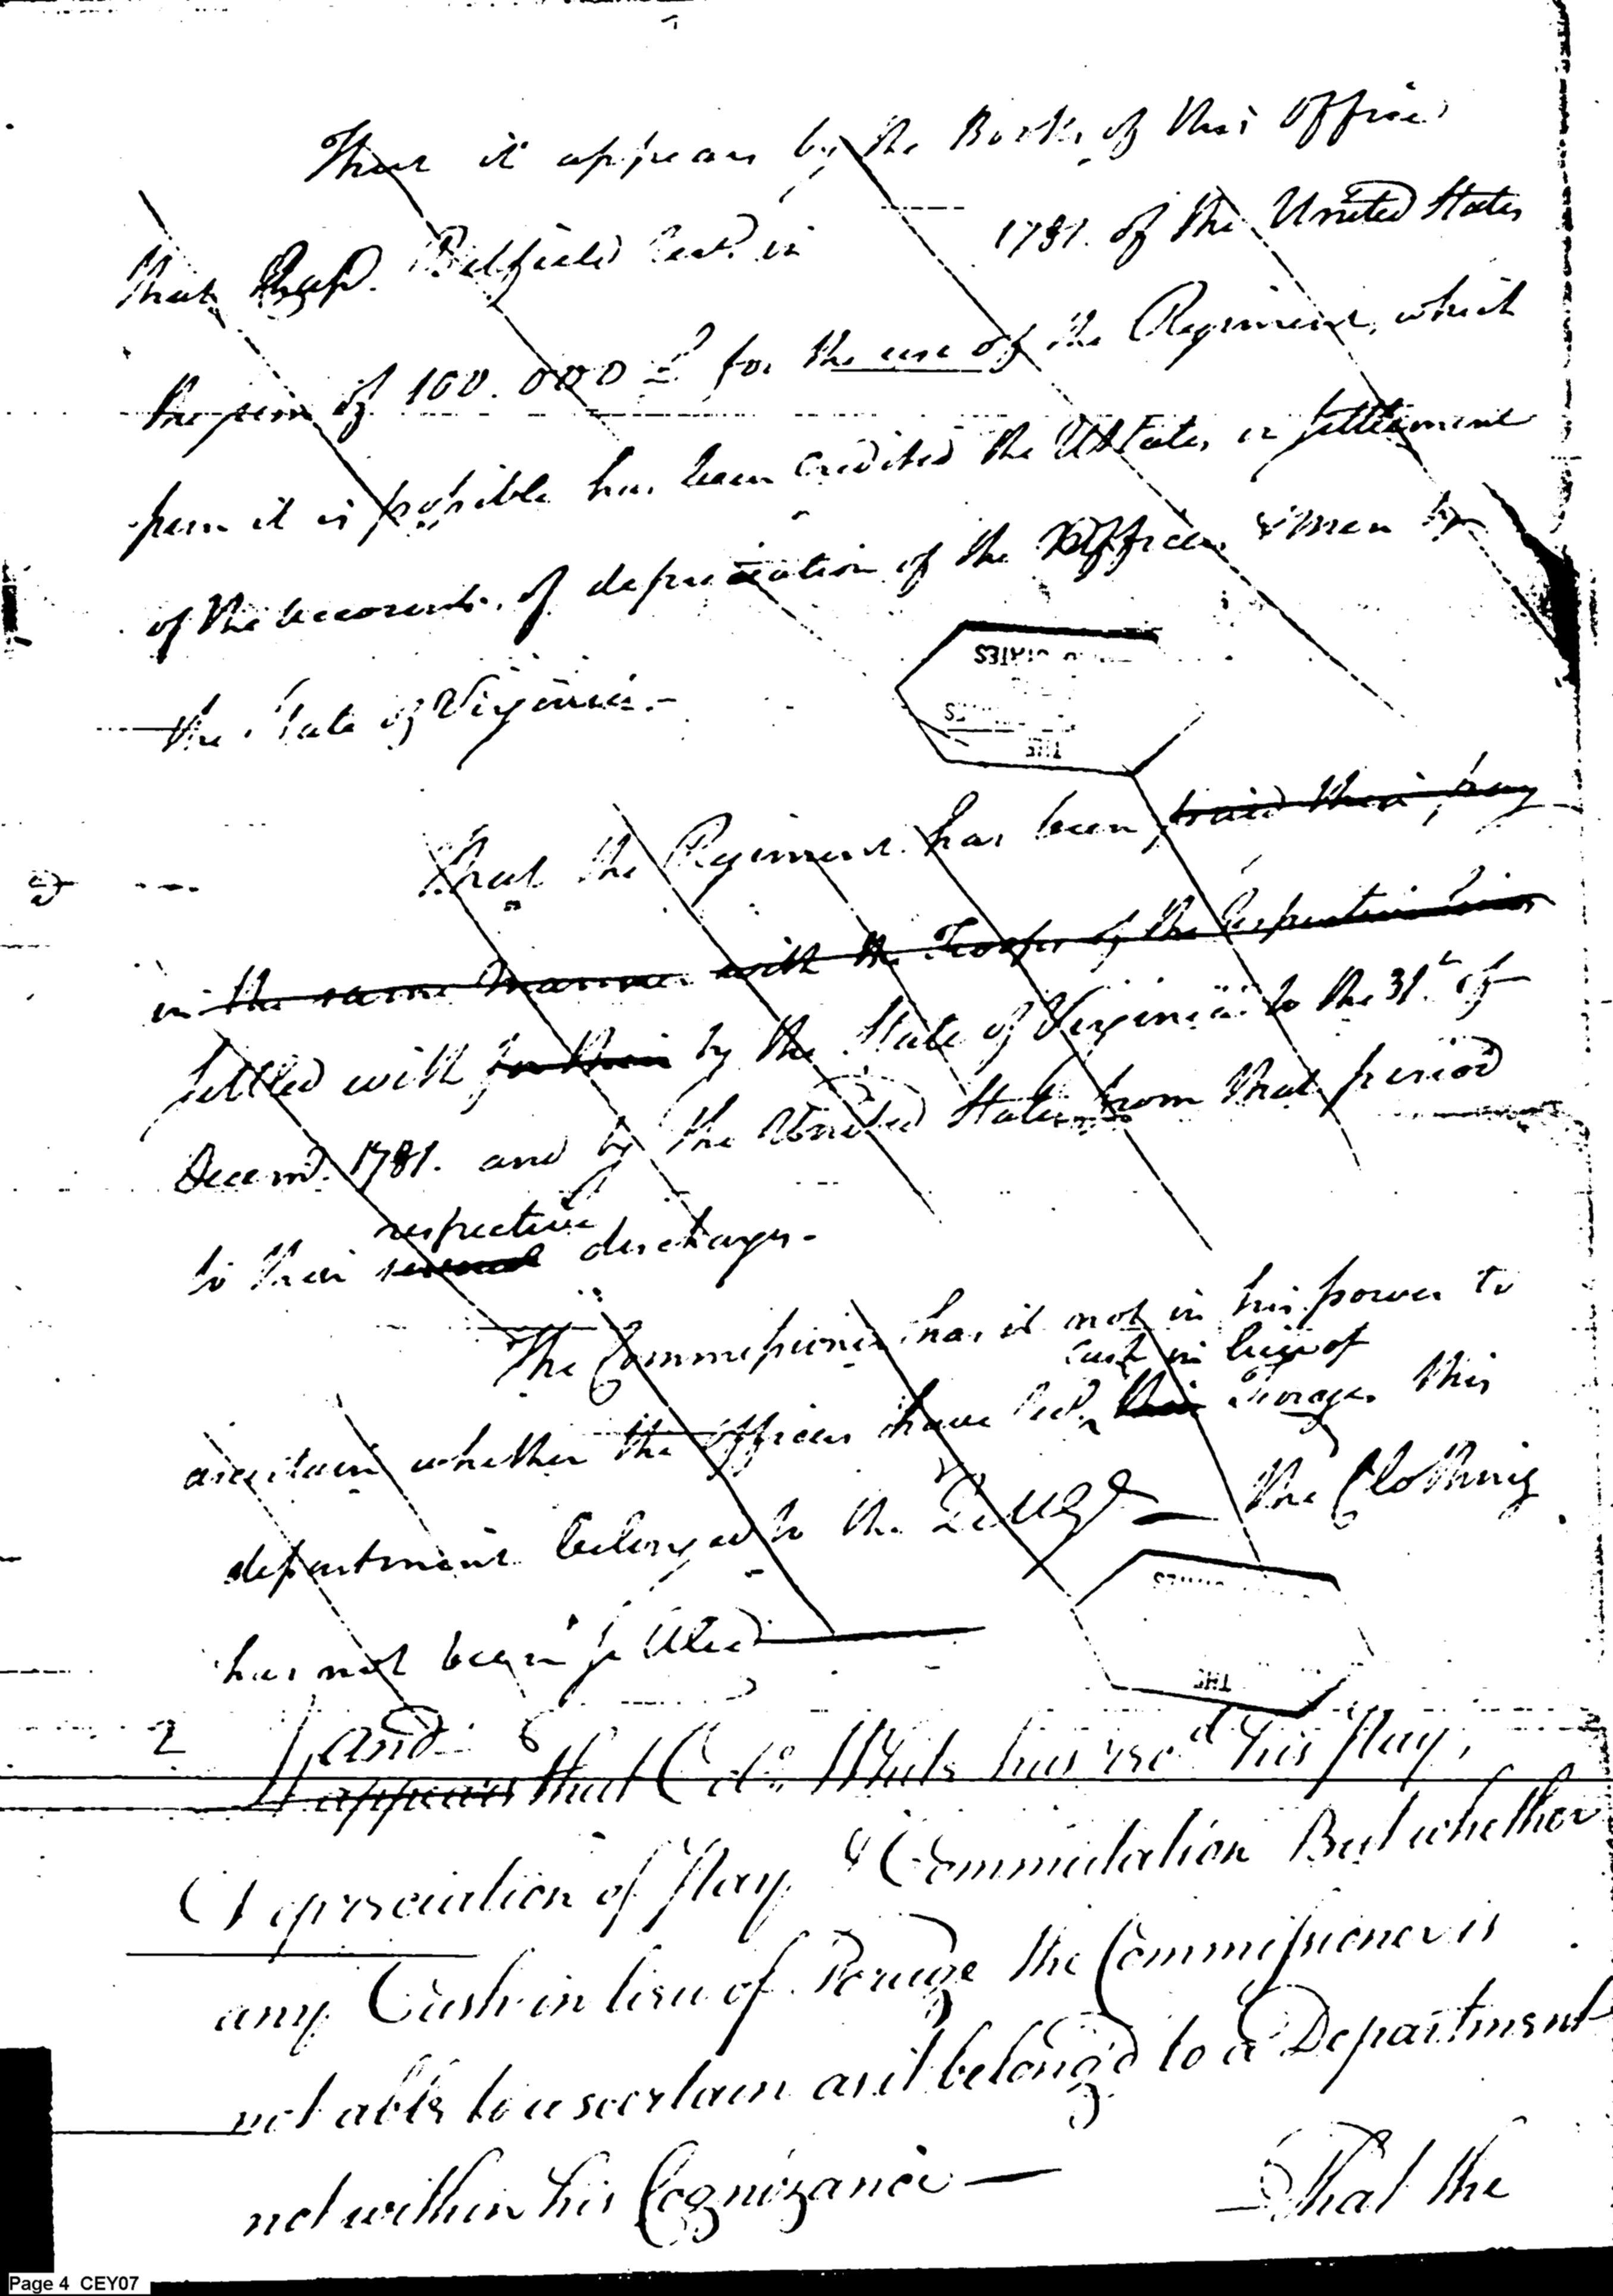 That it appears by the Books of this Office
that Capt. Belfield recd. in 1781. of the United States
the sum of 100.000 £ for the use of the Regiment, which
sum it is possible has been credited the UStates in settlement
of the accounts of depreciation of the Officers & Men by
the State of Virginia.-
UNITED STATES
THE
That the Regiment has been paid their pay
in the same manner with the Troops of the respective Lines
settled with for their by the State of Virginia to the 31t. of
Decemr. 1781. and by the United States from that period
respective
to their several discharges.-
The Commissioner has it not in his power to
cash in lieu of
ascertain whether the Officers have recd. their Forage, this
department belonged to the the Clothing
has not been settled
THE
2 And
appears that Colo. White has recd his Pay,
Depreciation of Pay & Commutation But whether
any Cash in lieu of Forage the Commissioner is
not able to ascertain as it belong'd to a Department
not within his Cognizance —
That the
Page 4 CEY07